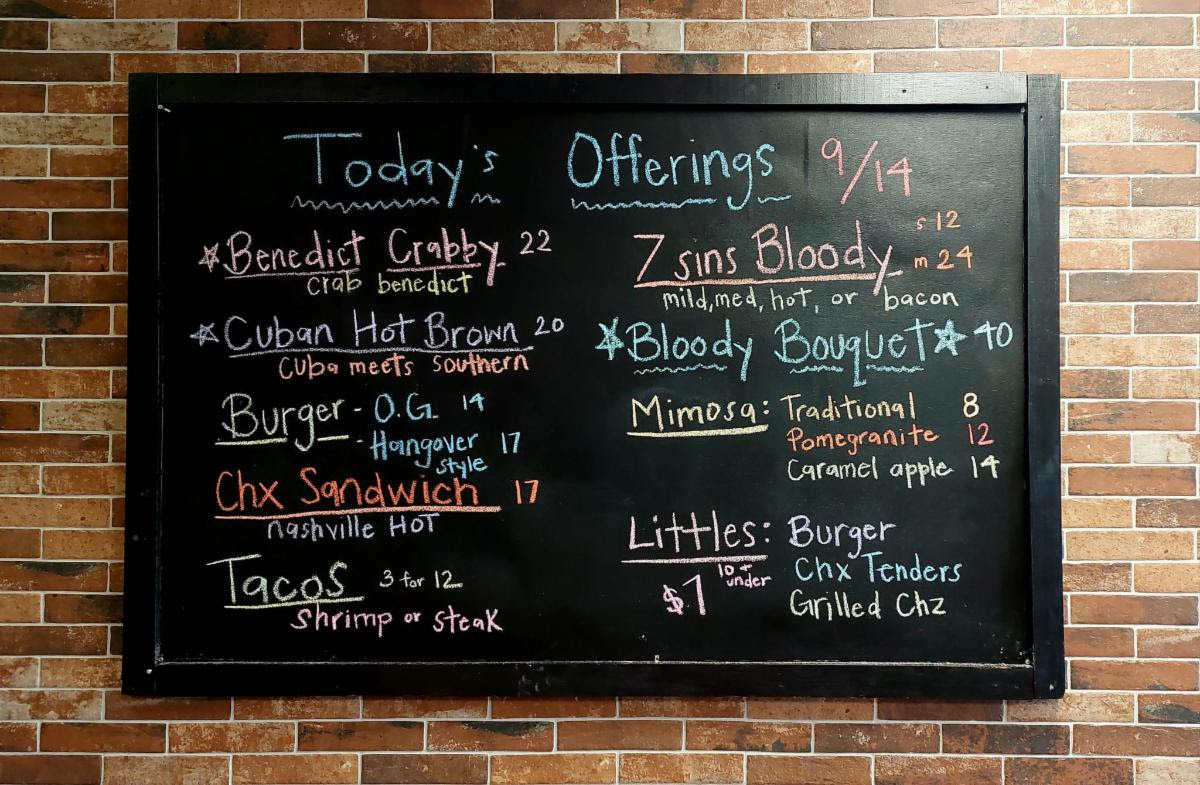 Today's Offerings 9/14
☆Benedict Crabby 22
crab benedict
☆Cuban Hot Brown 20
Cuba meets southern
Burger - O.G. 14
- Hangover 17
style
Chx Sandwich 17
nashville HOT
Tacos 3 for 12
shrimp or steak
s 12
7 sins Bloody m 24
mild, med, hot, or bacon
☆Bloody Bouquet☆ 40
Mimosa: Traditional 8
Pomegranite 12
Caramel apple 14
Littles: Burger
10 + under
$7
Chx Tenders
Grilled Chz